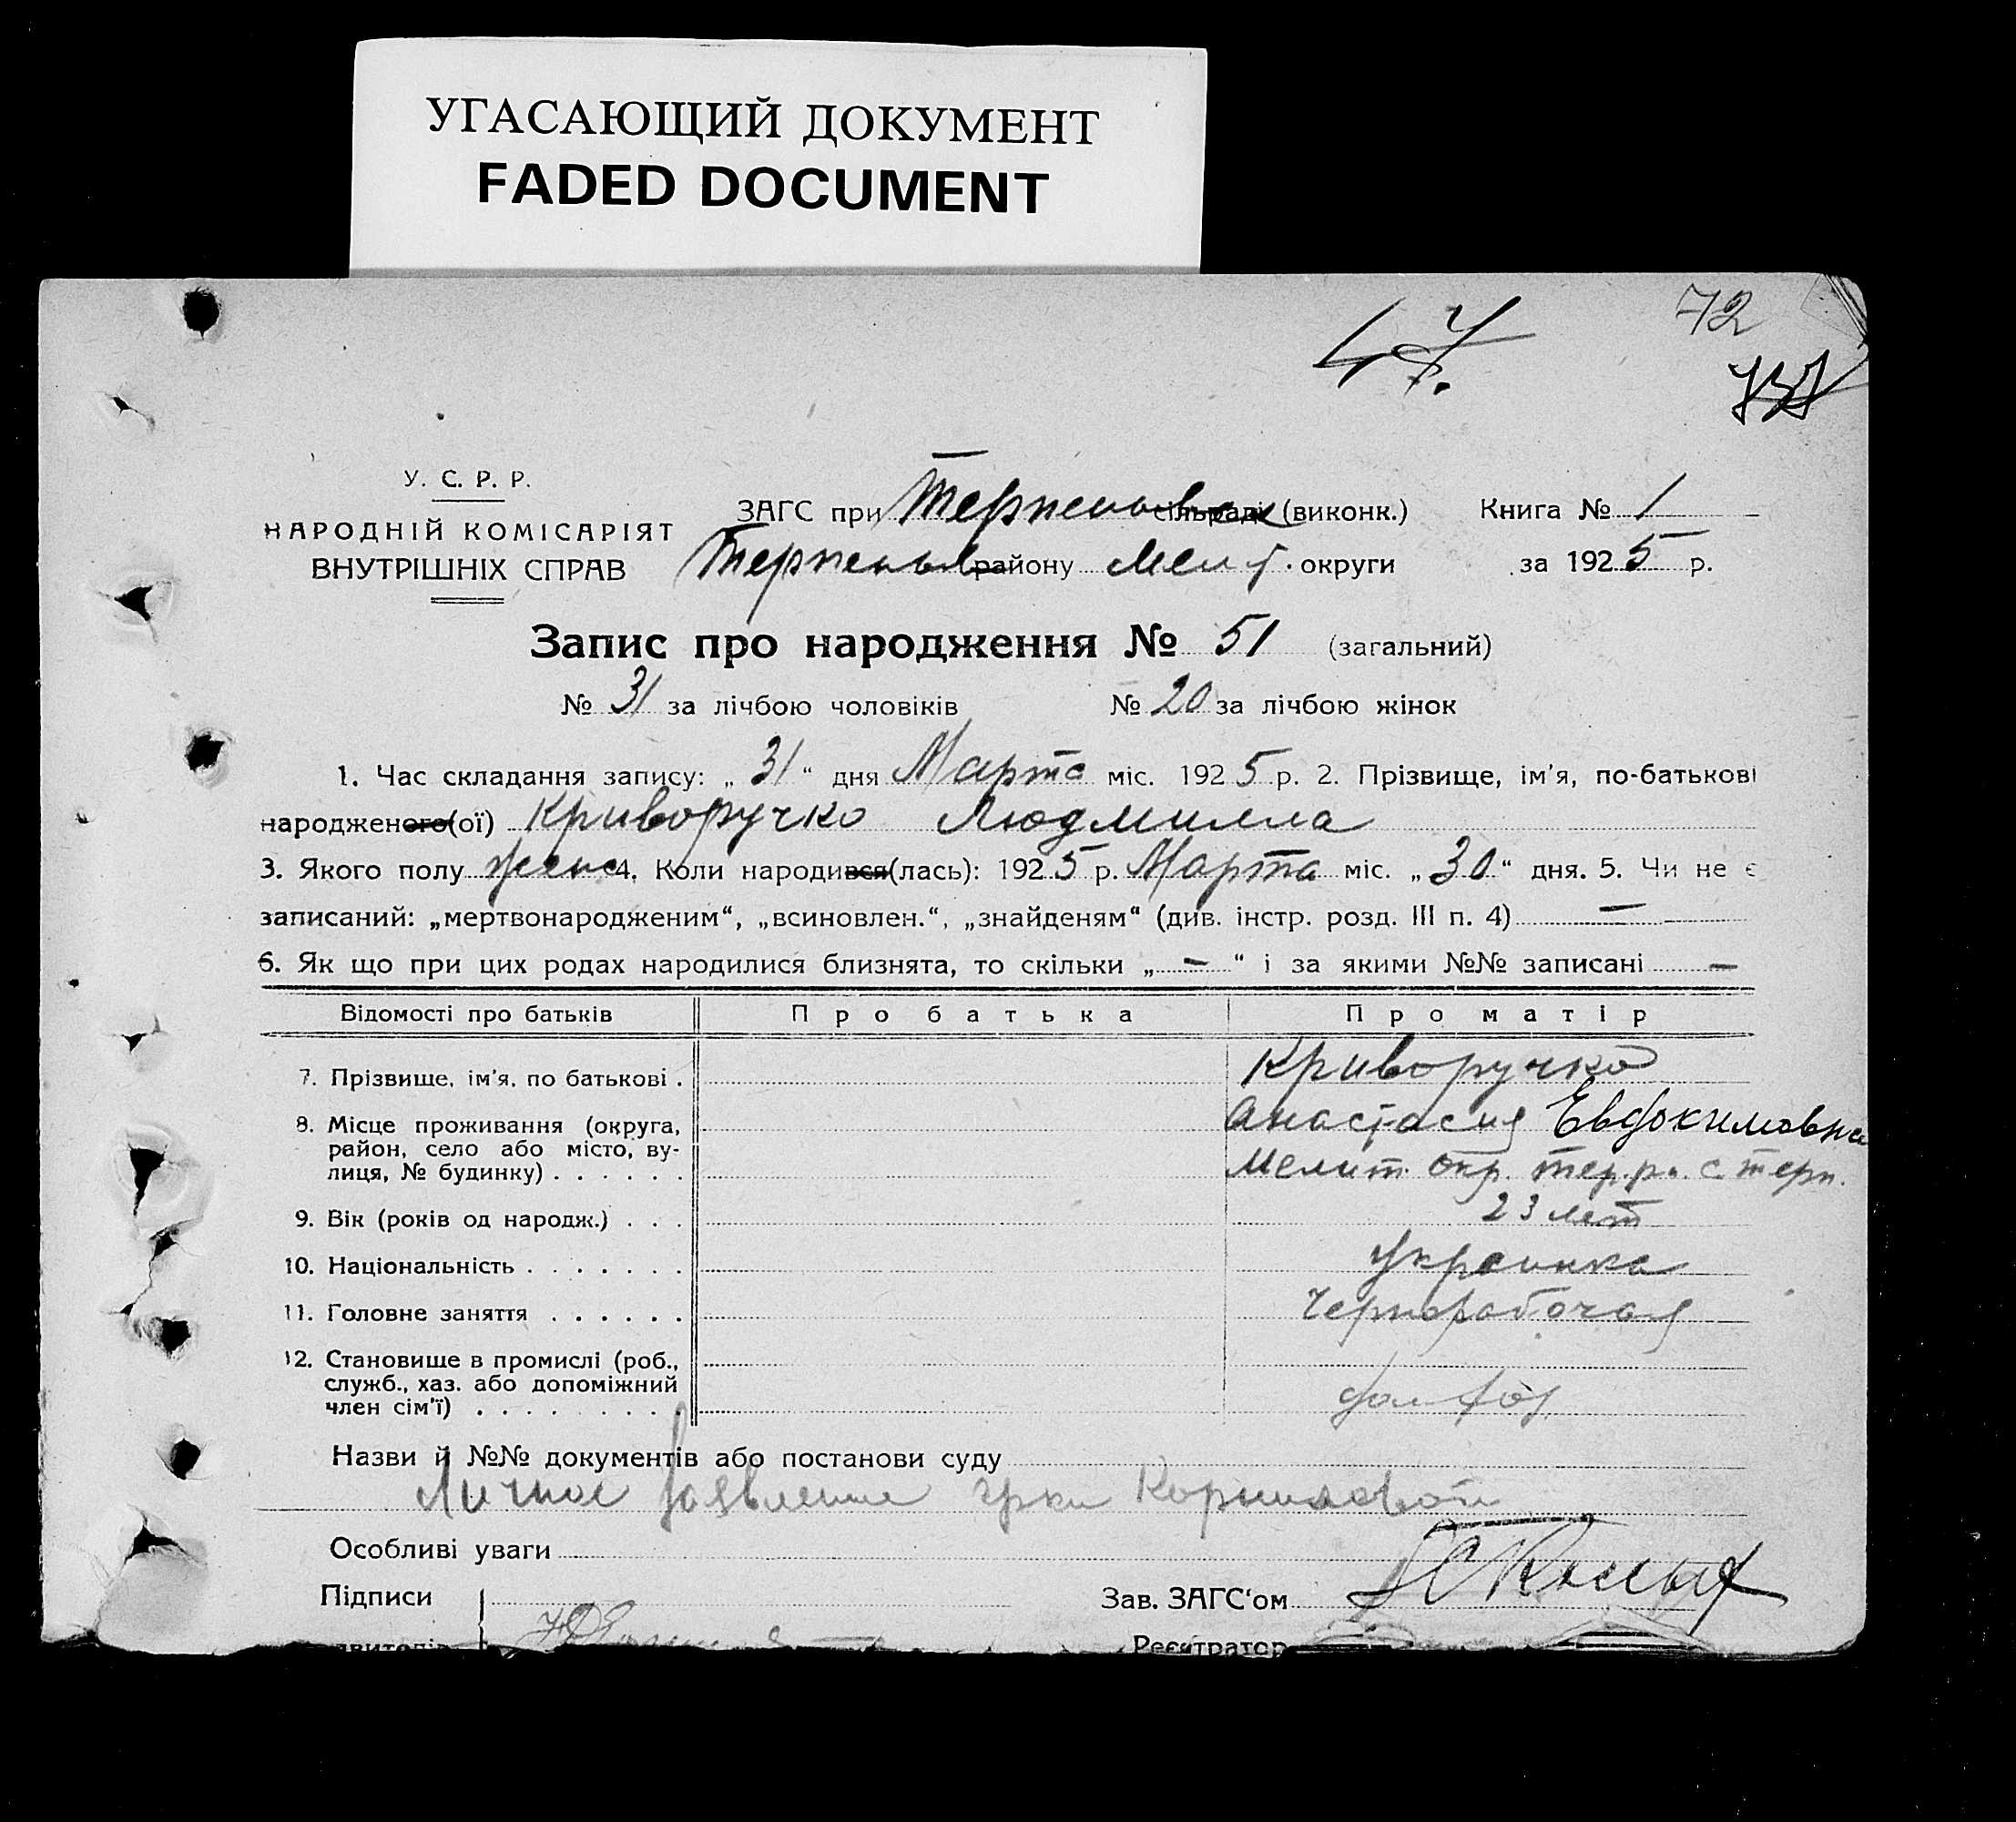 УГАСАЮЩИЙ ДОКУМЕНТ
FADED DOCUMENT
72
У. С. Р. Р.
НАРОДНІЙ КОМІСАРІЯТ
ВНУТРІШНІХ СПРАВ
ЗАГС при сільраді (виконк.) Книга № 1
району округи за 1925 р.
Запис про народження № 51 (загальний)
№ 31 за лічбою чоловіків № 20 за лічбою жінок
1. Час складання запису: „31“ дня Марта міс. 1925 р. 2. Прізвище, ім'я, по-батькові
народженого(ої) Криворучко Людмилла
3. Якого полу женс 4. Коли народився(лась): 1925 р. Марта міс. „30“ дня. 5. Чи не є
записаний: „мертвонародженим“, „всиновлен.“, „знайденям“ (див. інстр. розд. III п. 4) —
6. Як що при цих родах народилися близнята, то скільки „—“ і за якими №№ записані —
Відомості про батьків Про батька Про матір
7. Прізвище, ім'я, по батькові . Криворучко
Анастасия Евдокимовна
8. Місце проживання (округа,
район, село або місто, ву-
лиця, № будинку) . . . . . . Мелит. окр. тер. р. с. терп.
9. Вік (років од народж.) . . . 23 лет
10. Національність . . . . . . . Украинка
11. Головне заняття . . . . . . Чернорабочая
12. Становище в промислі (роб.,
служб., хаз. або допоміжний
член сім'ї) . . . . . . . . .
Назви й №№ документів або постанови суду
Личное заявление гр-ки Корниловой
Особливі уваги
Підписи Зав. ЗАГС'ом
Реєстратор